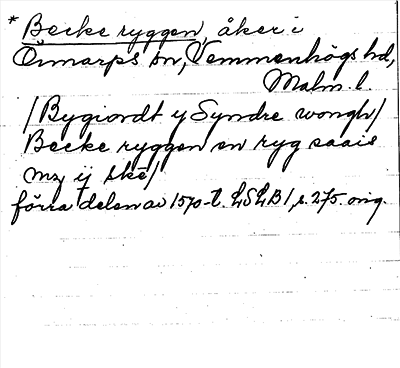 * Becke ryggen, åker i
Önnarps sn, Vemmenhögs hd,
Malm. l.
/Bygiordt y Syndre wongh/
Becke ryggen en ryg saais
mz ij skē/
förra delen av 1570-t. LSLB 1, s. 275. orig.